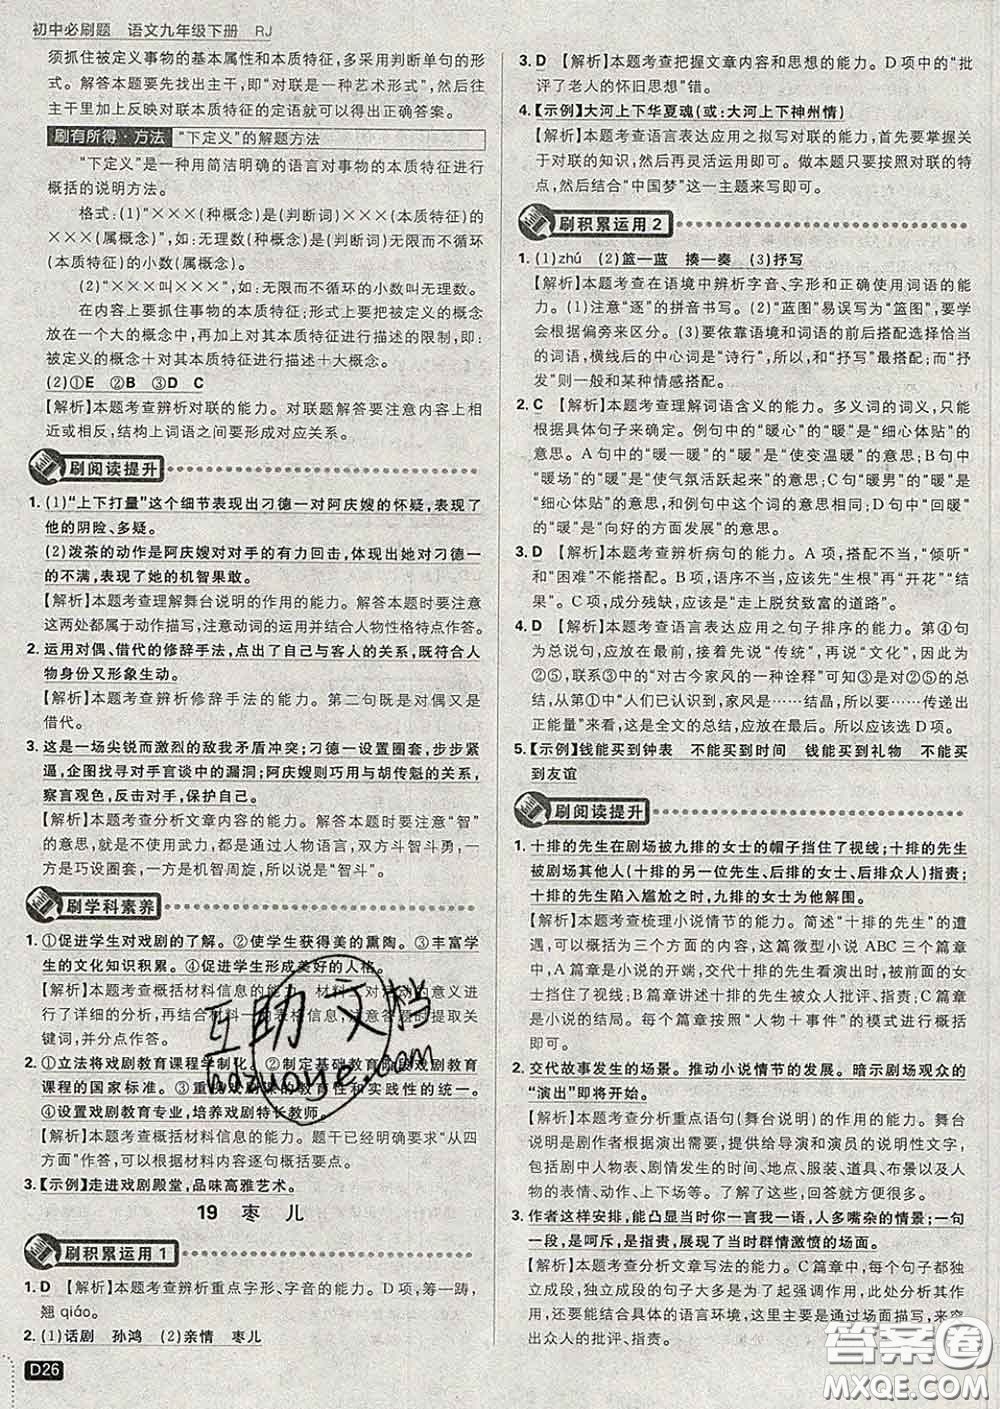 初中必刷题 语文九年级下册 RJ
须抓住被定义事物的基本属性和本质特征,多采用判断单句的形
式。解答本题要先找出主干,即“对联是一种艺术形式”,然后往
主干里加上反映对联本质特征的定语就可以得出正确答案。
刷有所得·方法 “下定义”的解题方法
“下定义”是一种用简洁明确的语言对事物的本质特征进行
概括的说明方法。
格式:(1)“×××(种概念)是(判断词)×××(本质特征)的
×××(属概念)”,如:无理数(种概念)是(判断词)无限而不循环
(本质特征)的小数(属概念)。
(2)“×××叫×××”,如:无限而不循环的小数叫无理数。
在内容上要抓住事物的本质特征;形式上要把被定义的概念
放在一个大的概念中,再加上对对其本质特征的限制,即:
被定义的概念+对其本质特征进行描述+大概念。
(2)①E ②B ③D C
【解析】本题考查辨析对联的能力。对联题解答要注意内容上相
近或相反,结构上词语之间要形成对应关系。
刷阅读提升
1. (1)“上下打量”这个细节表现出刁德一对阿庆嫂的怀疑,表现了
他的阴险、多疑。
(2)泼茶的动作是阿庆嫂对对手的有力回击,体现出她对刁德一
的不满,表现了她的机智果敢。
【解析】本题考查理解舞台说明的作用的能力。解答本题时要注意
这两处都属于动作描写,注意动词的运用并结合人物性格特点作答。
2. 运用对偶、借代的修辞手法,点出了自己与客人的关系,既符合人
物身份又形象生动。
【解析】本题考查辨析修辞手法的能力。第二句既是对偶又是
借代。
3. 这是一场尖锐而激烈的敌我矛盾冲突;刁德一设置圈套,步步紧
逼,企图找寻对手言谈中的漏洞;阿庆嫂则巧用与胡传魁的关系,
察言观色,反击对手,保护自己。
【解析】本题考查分析文章内容的能力。解答本题时要注意“智”
的意思,就是不使用武力,都是通过人物语言,双方斗智斗勇,一
方是巧设圈套,一方是机智周旋,所以说是“智斗”。
刷学科素养
1. ①促进学生对戏剧的了解。②使学生获得美的熏陶。③丰富学
生的文化知识积累。④促进学生形成美好的人格。
【解析】本题考查概括材料信息的能力。材料 对 动的意义进
行了详细的分析,解答时 信息,注意答题时要提取关
键词,并分点作答。
2. ①立法将戏剧教育课程学制化。②制定基础教育阶段戏剧教育
课程的国家标准。③重视戏剧课的教育性和实践性的统一。
④设置戏剧教育专业,培养戏剧特长教师。
【解析】本题考查概括材料信息的能力。题干已经明确要求“从四
方面”作答,可以根据材料内容逐句概括要点。
3. 【示例】走进戏剧殿堂,品味高雅艺术。
19 枣儿
刷积累运用1
1. D 【解析】本题考查辨析重点字形、字音的能力。D项,筹—踌,
翘qiáo。
2. (1)话剧 孙鸿 (2)亲情 枣儿
D26
3. D 【解析】本题考查把握文章内容和思想的能力。D项中的“批
评了老人的怀旧思想”错。
4. 【示例】大河上下华夏魂(或:大河上下神州情)
【解析】本题考查语言表达应用之拟写对联的能力,首先要掌握对
联的知识,然后再灵活运用即可。做本题只要按照对联的特
点,然后结合“中国梦”这一主题来写即可。
刷积累运用2
1. (1)zhú (2)篮—蓝 揍—奏 (3)抒写
【解析】本题考查在语境中辨析字音、字形和正确使用词语的能
力。(1)注意“逐”的拼音书写。(2)“蓝图”易误写为“篮图”,要学
会根据偏旁来区分。(3)要依靠语境和词语的前后搭配选择恰当
的词语,横线后的中心词是“诗行”,所以,和“抒写”最搭配;而“抒
发”则一般和某种情感搭配。
2. C 【解析】本题考查理解词语含义的能力。多义词的词义,只能
根据具体句子来确定。例句中的“暖心”的“暖”为“细心体贴”的
意思。A句中的“暖一暖”的“暖”是“使变温暖”的意思;B句中
“暖场”的“暖”是“使气氛活跃起来”的意思;C句“暖男”的“暖”是
“细心体贴”的意思,和例句中这个词的意思相同;D句中“回暖”
的“暖”是“向好的方面发展”的意思。
3. D 【解析】本题考查辨析病句的能力。A项,搭配不当,“倾听”
和“困难”不能搭配。B项,语序不当,应该先“生根”再“开花”“结
果”。C项,成分残缺,应该是“走上脱贫致富的道路”。
4. D 【解析】本题考查语言表达应用之句子排序的能力。第④句
为总说句,应放在最前,接着先说“传统”,再说“文化”,因此为
②⑤,联系③中的“对古今家风的一种诠释”可知③是对②⑤的总
结,从第①中“人们已认识到,家风是……就要……传递出
正能量”来看,这是全文的总结,应放在最后。所以应该选D项。
5. 【示例】钱能买到钟表 不能买到时间 钱能买到礼物 不能买
到友谊
刷阅读提升
1. 十排的先生在剧场被九排的女士的帽子挡住了视线;十排的先生
被剧场其他人(十排的另一位先生、后排的女士、后排众人)指责;
十排的先生陷入尴尬之时,九排的女士为他解围。
【解析】本题考查梳理小说情节的能力。简述“十排的先生”的遭
遇,可以概括为三个方面的内容,这篇微型小说ABC三个篇章
中,A篇章是小说的开端,交代十排的先生看演出时,被九排的女
士挡住了视线;B篇章讲述十排的先生被众人批评、指责;C篇章
是小说的结局。每个篇章按照“人物+事件”的模式进行概括
即可。
2. 交代故事发生的场景。推动小说情节的发展。暗示剧场观众的
“演出”即将开始。
【解析】本题考查分析重点语句(舞台说明)的作用的能力。舞台
说明是剧作者根据演出需要,提供给导演和演员的说明性文字,
包括剧中人物表、剧情发生的时间、地点、服装、道具、布景以及人
物的表情、动作、上下场等。了解了这些内容,就容易解答了。
3. 作者这样安排,能凸显当时你一言我一语,人多嘴杂的情景;一句
一段,是呵斥、是指责,展现了当时群情激愤的场面。
【解析】本题考查分析文章写法的能力。C篇章中这些句子都独
立成段,独立成段的句子大多是为了起强调作用,此处分析其作
用应要结合具体的语言环境,主要是通过场面描写,来突
出众人的批评、指责。
互助文档
hazuoye.com
答案圈
MXQE.COM